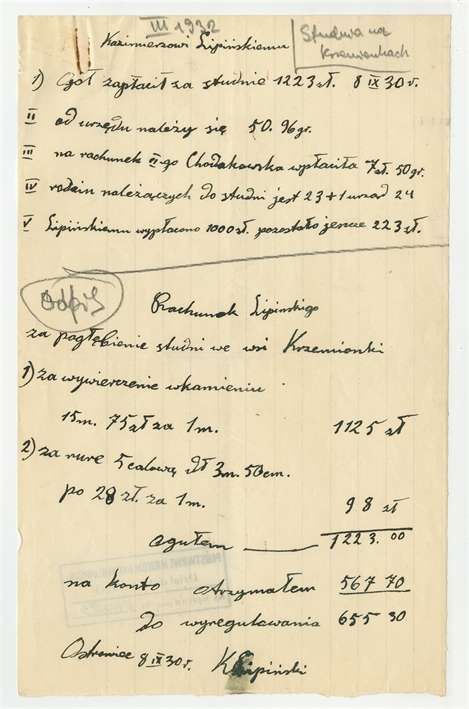 III 1932
Studnia na
Krzemionkach
Kazimierzowi Lipińskiemu
1) Goł zapłacił za studnie 1223 zł. 8 IX 30 r.
II od urzędu należy się 50. 96 gr.
III na rachunek II-go Chodakowska wpłaciła 7 zł. 50 gr.
IV rodzin należących do studni jest 23 + 1 urząd 24
V Lipińskiemu wypłacono 1000 zł. pozostało jeszcze 223 zł.
Odpis
Rachunek Lipińskiego
za pogłębienie studni we wsi Krzemionki
1) za wywiercenie w kamieniu
15 m. 75 zł za 1 m. 1125 zł
2) za rurę 5 calową dł 3 m. 50 cm.
po 28 zł. za 1 m. 98 zł
ogułem 1223.00
na konto otrzymałem 567 70
do wyregulowania 655 30
Ostrowiec 8 IX 30 r. K Lipiński